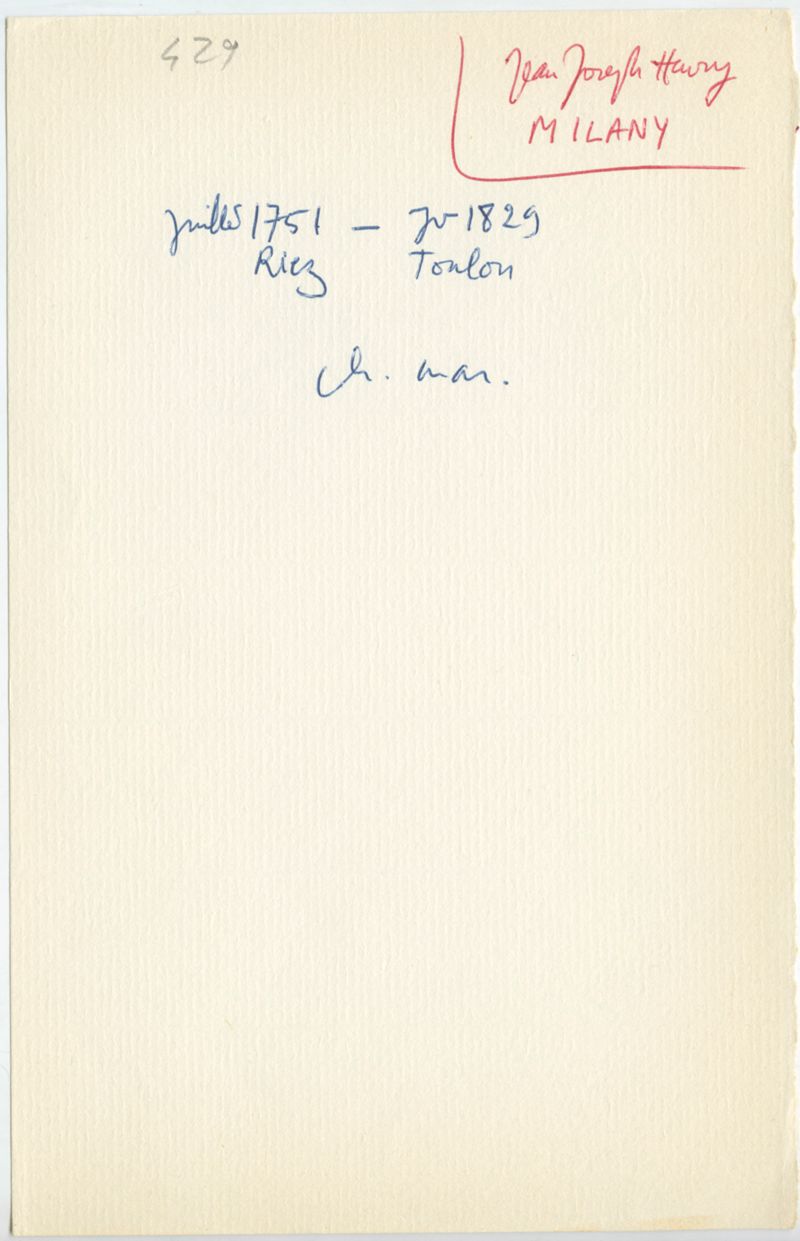 429
Jean Joseph Henry
MILANY
juillet 1751 — Jv 1829
Riez Toulon
ch. mar.